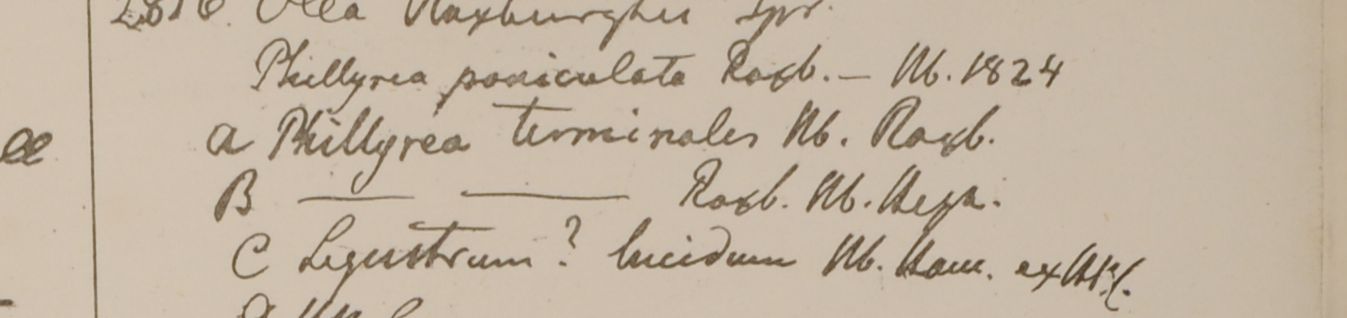 2816 Olea Roxburghii Spr.
Phillyrea paniculata Roxb. — Hb. 1824
a Phillyrea terminales Hb. Roxb.
B — — Roxb. Hb. Heyn.
C Ligustrum? lucidum Hb. Ham. ex